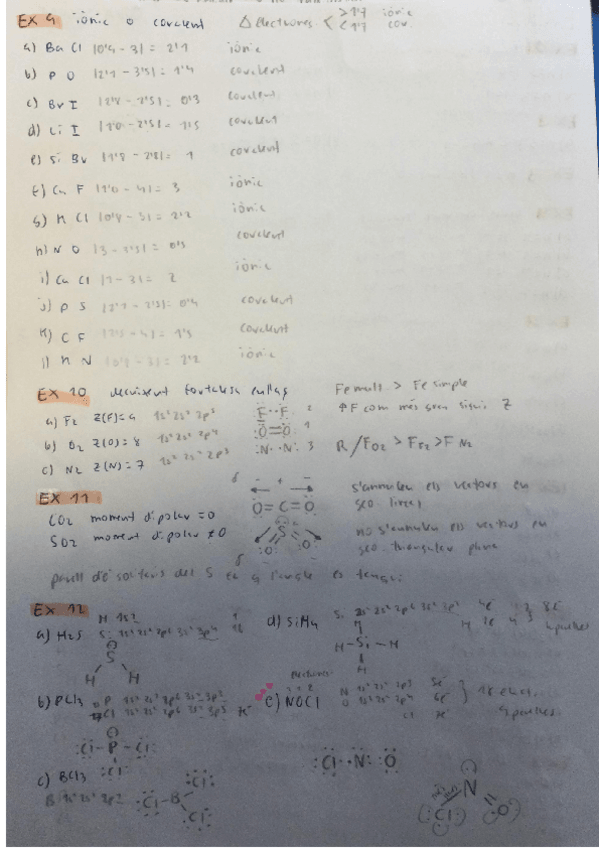 EX 9 iònic o covalent Δ electroneg < >1'7 iònic
<1'7 cov.
a) Ba Cl |0'9 - 3| = 2'1 iònic
b) P O |2'1 - 3'5| = 1'4 covalent
c) Br I |2'8 - 2'5| = 0'3 covalent
d) Li I |1'0 - 2'5| = 1'5 covalent
e) Si Br |1'8 - 2'8| = 1 covalent
f) Ca F |1'0 - 4| = 3 iònic
g) K Cl |0'8 - 3| = 2'2 iònic
h) N O |3 - 3'5| = 0'5 covalent
i) Ca Cl |1 - 3| = 2 iònic
j) P S |2'1 - 2'5| = 0'4 covalent
k) C F |2'5 - 4| = 1'5 covalent
l) K N iònic
EX 10 decreixent fortalesa enllaç
Fe mult. > Fe simple
a) F2 Z(F)=9 1s² 2s² 2p⁵ F F 2
↑F com més gran sigui Z
b) O2 Z(O)=8 1s² 2s² 2p⁴ O=O 1
c) N2 Z(N)=7 1s² 2s² 2p³ N N 3
R/ FO2 > FF2 > F N2
EX 11
CO2 moment dipolar =0
O=C=O
s'anul·len els vectors en
geo. lineal
SO2 moment dipolar ≠0
S
O O
no s'anul·len els vectors en
geo. triangular plana
parell d'e⁻ solitaris del S
EX 12
H 1s1
a) H2S S: 1s² 2s² 2p⁶ 3s² 3p⁴
S
H H
d) SiH4 Si 1s² 2s² 2p⁶ 3s² 3p² 4e⁻
H
H-Si-H
H
b) PCl3 P 1s² 2s² 2p⁶ 3s² 3p³
Cl 1s² 2s² 2p⁶ 3s² 3p⁵ 7e⁻
Cl-P-Cl
Cl
e) NOCl N 1s² 2s² 2p³ 5e⁻
O 1s² 2s² 2p⁴ 6e⁻
Cl 7e⁻
18 elect.
Cl N O
c) BCl3
B 1s² 2s² 2p1
Cl-B
Cl
Cl
N
Cl O